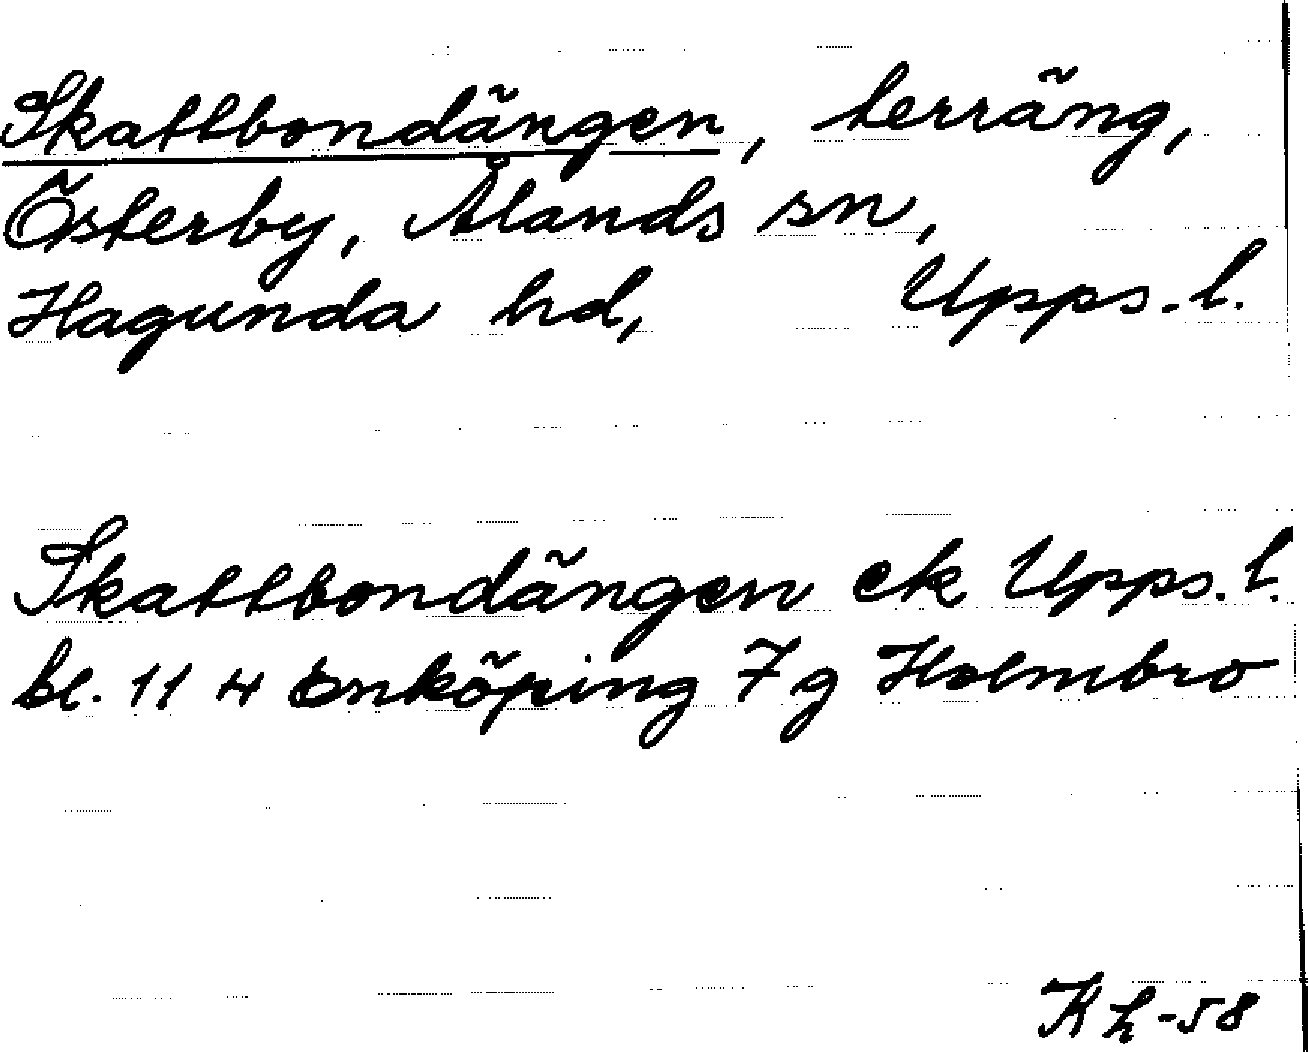 Skattbondängen, terräng,
Österby, Ålands sn,
Hagunda hd, Upps. l.
Skattbondängen ek Upps. l.
bl. 11 4 Enköping 7 g Holmbro
Kh-58